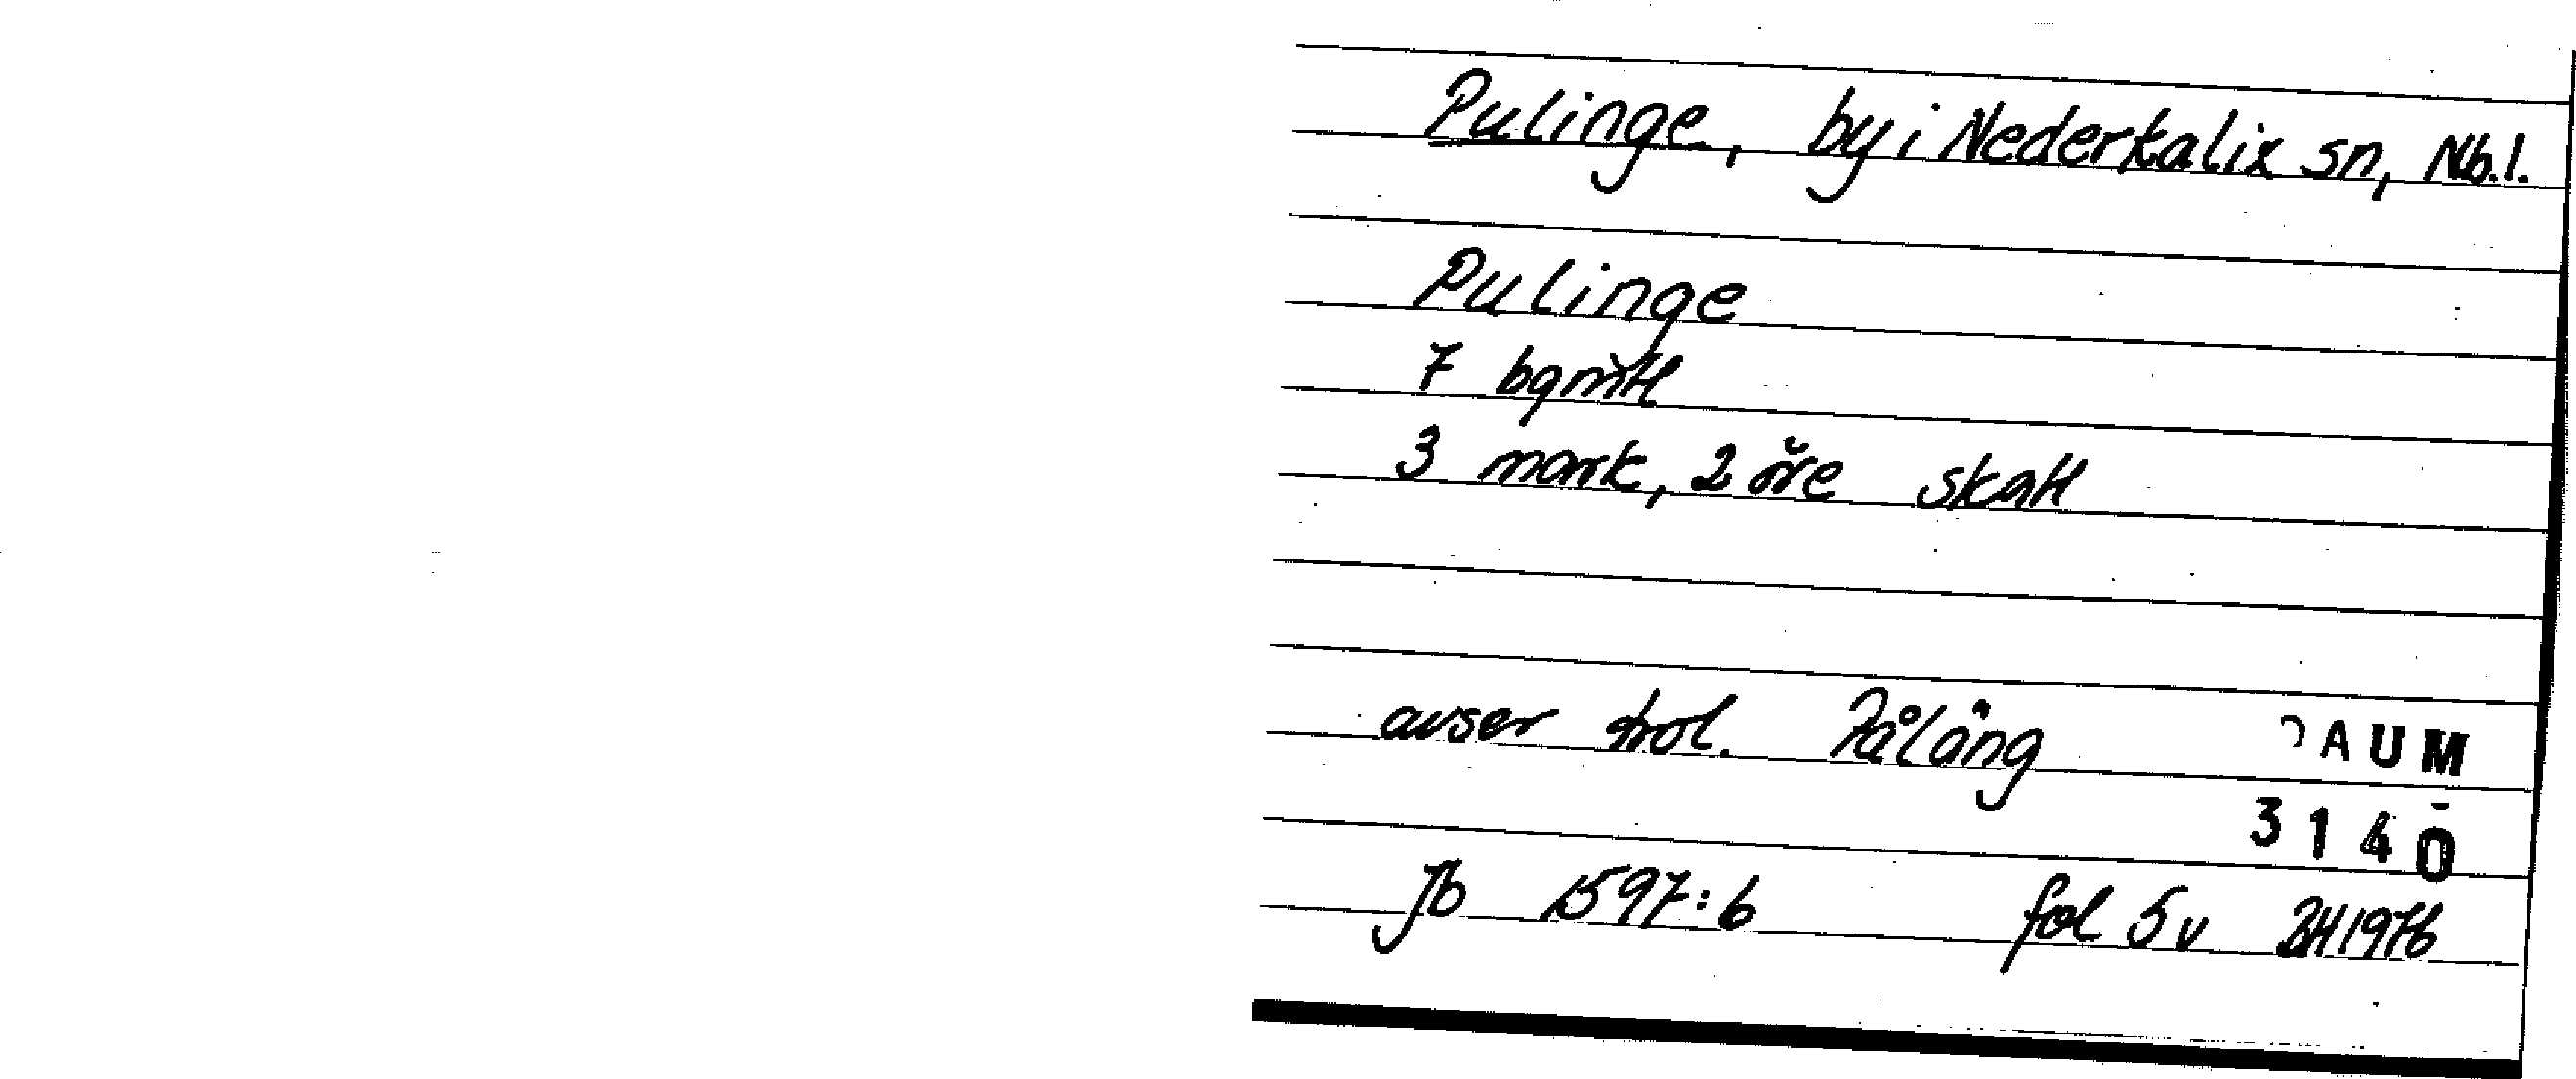 Pulinge, by i Nederkalix sn, Nb.l.
Pulinge
7 bgmtl
3 mark, 2 öre skatt
avser trol. Påläng
DAUM
3140
Jb 1597:6 fol 5v BH1976